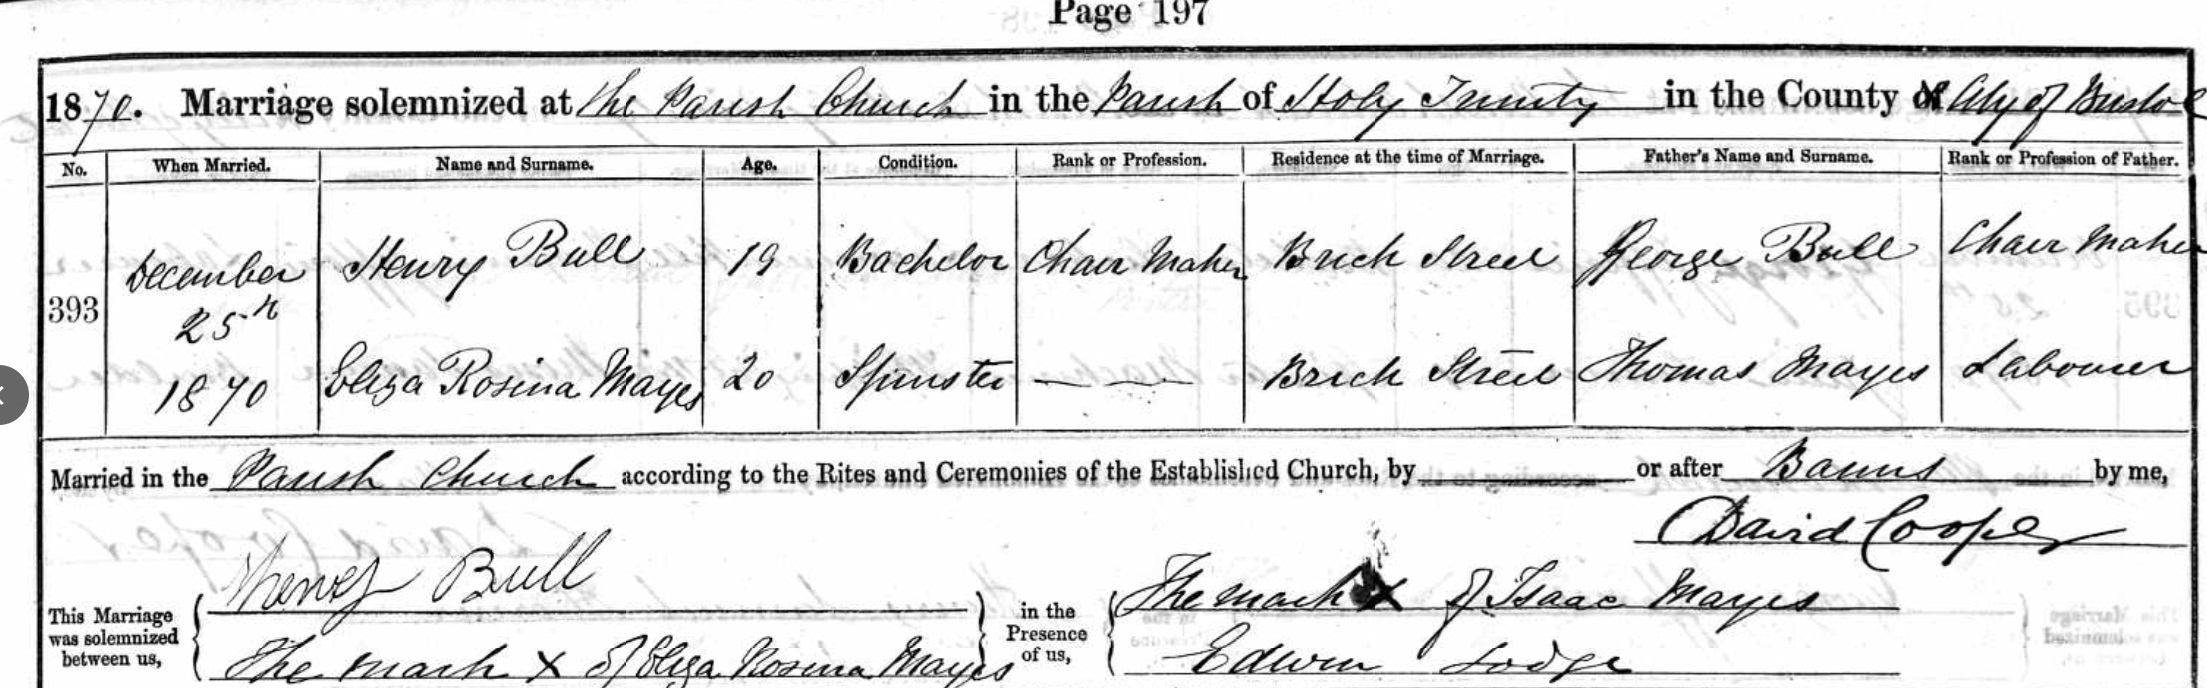 Page 197
1870. Marriage solemnized at the Parish Church in the Parish of Holy Trinity in the County of City of Bristol
No. When Married. Name and Surname. Age. Condition. Rank or Profession. Residence at the time of Marriage. Father's Name and Surname. Rank or Profession of Father.
393 December 25th 1870 Henry Bull 19 Bachelor Chair Maker Brick Street George Bull Chair Maker
Eliza Rosina Mayes 20 Spinster — — Brick Street Thomas Mayes Labourer
Married in the Parish Church according to the Rites and Ceremonies of the Established Church, by or after Banns by me,
David Cooper
This Marriage was solemnized between us, Henry Bull in the Presence of us, The mark X of Isaac Mayes
The mark X of Eliza Rosina Mayes Edwin Lodge